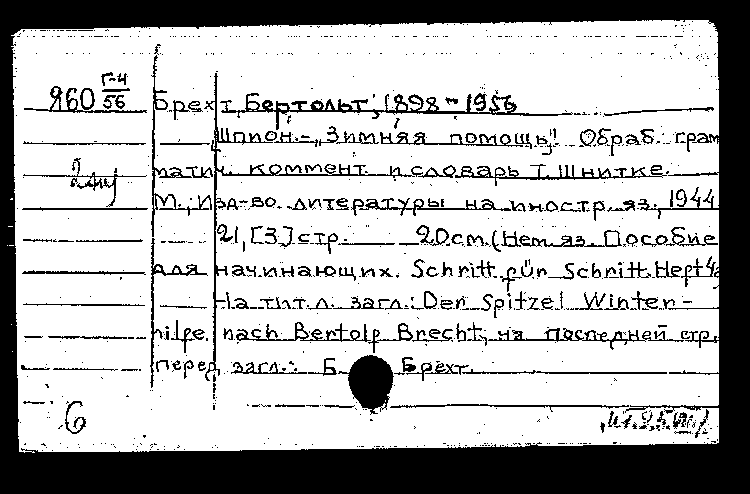 Я60 Г-4/56 Брехт, Бертольт, 1898-1956
Шпион.-„Зимняя помощь". Обраб. грам
матич. коммент. и словарь Т. Шнитке.
2 экз
М., Изд-во литературы на иностр. яз., 1944
21,[3]стр. 20см.(Нем. яз. Пособие
для начинающих. Schritt für Schritt. Heft 4)
На тит.л. загл.: Der Spitzel Winter-
hilfe nach Bertolp Brecht, на последней стр.
перед загл.: Б. Брехт.
6